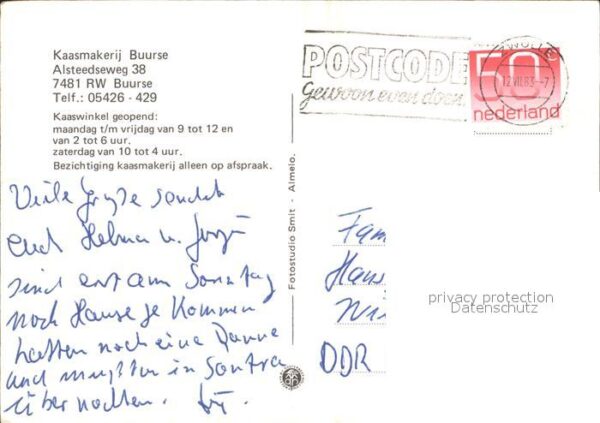 Kaasmakerij Buurse
Alsteedseweg 38
7481 RW Buurse
Telf.: 05426 - 429
Kaaswinkel geopend:
maandag t/m vrijdag van 9 tot 12 en
van 2 tot 6 uur.
zaterdag van 10 tot 4 uur.
Bezichtiging kaasmakerij alleen op afspraak.
Viele Grüße sendet
euch Helma u. Jürgen
sind erst am Sonntag
noch Hause gekommen
hatten noch eine Panne
und mußten in Sontra
übernachten.
Fotostudio Smit - Almelo.
POSTCODE
Gewoon even doen.
ZWOLLE
12.VII.83.-7
50
nederland
Fam
Hans
DDR
privacy protection
Datenschutz